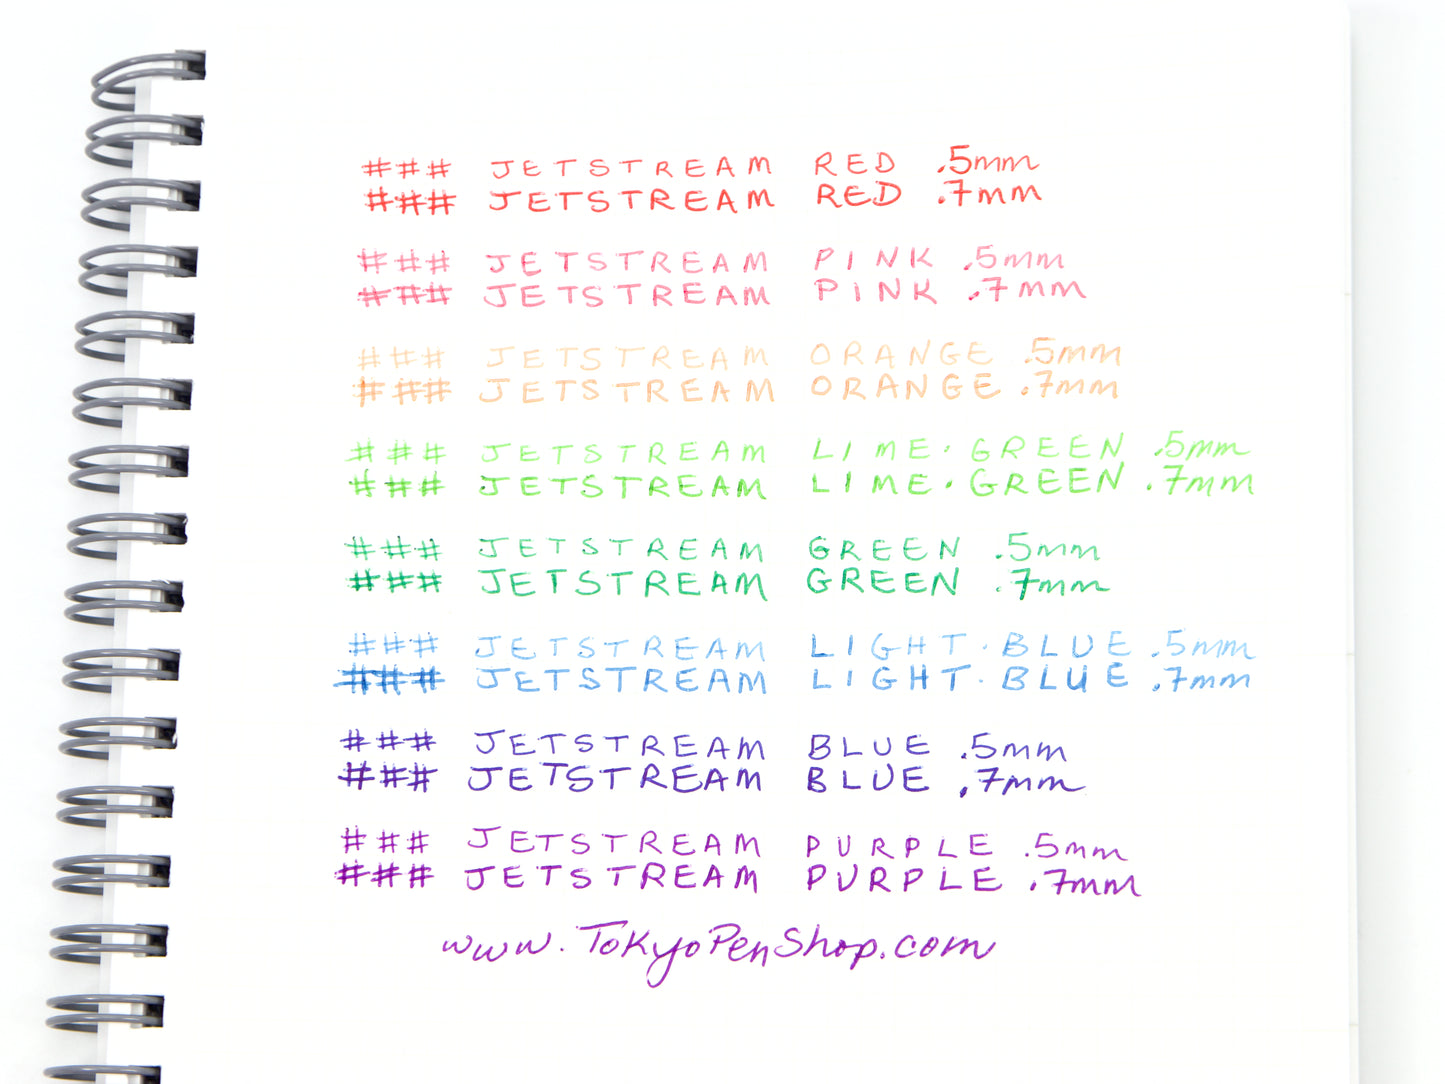 ### JETSTREAM RED .5mm
### JETSTREAM RED .7mm
### JETSTREAM PINK .5mm
### JETSTREAM PINK .7mm
### JETSTREAM ORANGE .5mm
### JETSTREAM ORANGE .7mm
### JETSTREAM LIME·GREEN .5mm
### JETSTREAM LIME·GREEN .7mm
### JETSTREAM GREEN .5mm
### JETSTREAM GREEN .7mm
### JETSTREAM LIGHT·BLUE .5mm
### JETSTREAM LIGHT·BLUE .7mm
### JETSTREAM BLUE .5mm
### JETSTREAM BLUE .7mm
### JETSTREAM PURPLE .5mm
### JETSTREAM PURPLE .7mm
www.TokyoPenShop.com